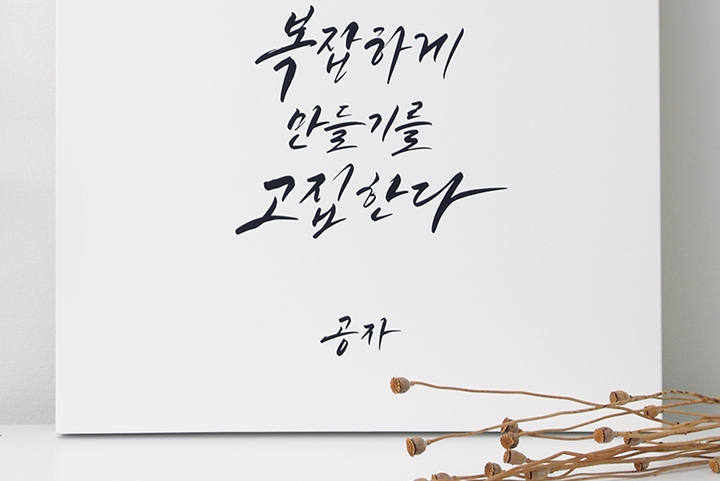 복잡하게
만들기를
고집한다
공자